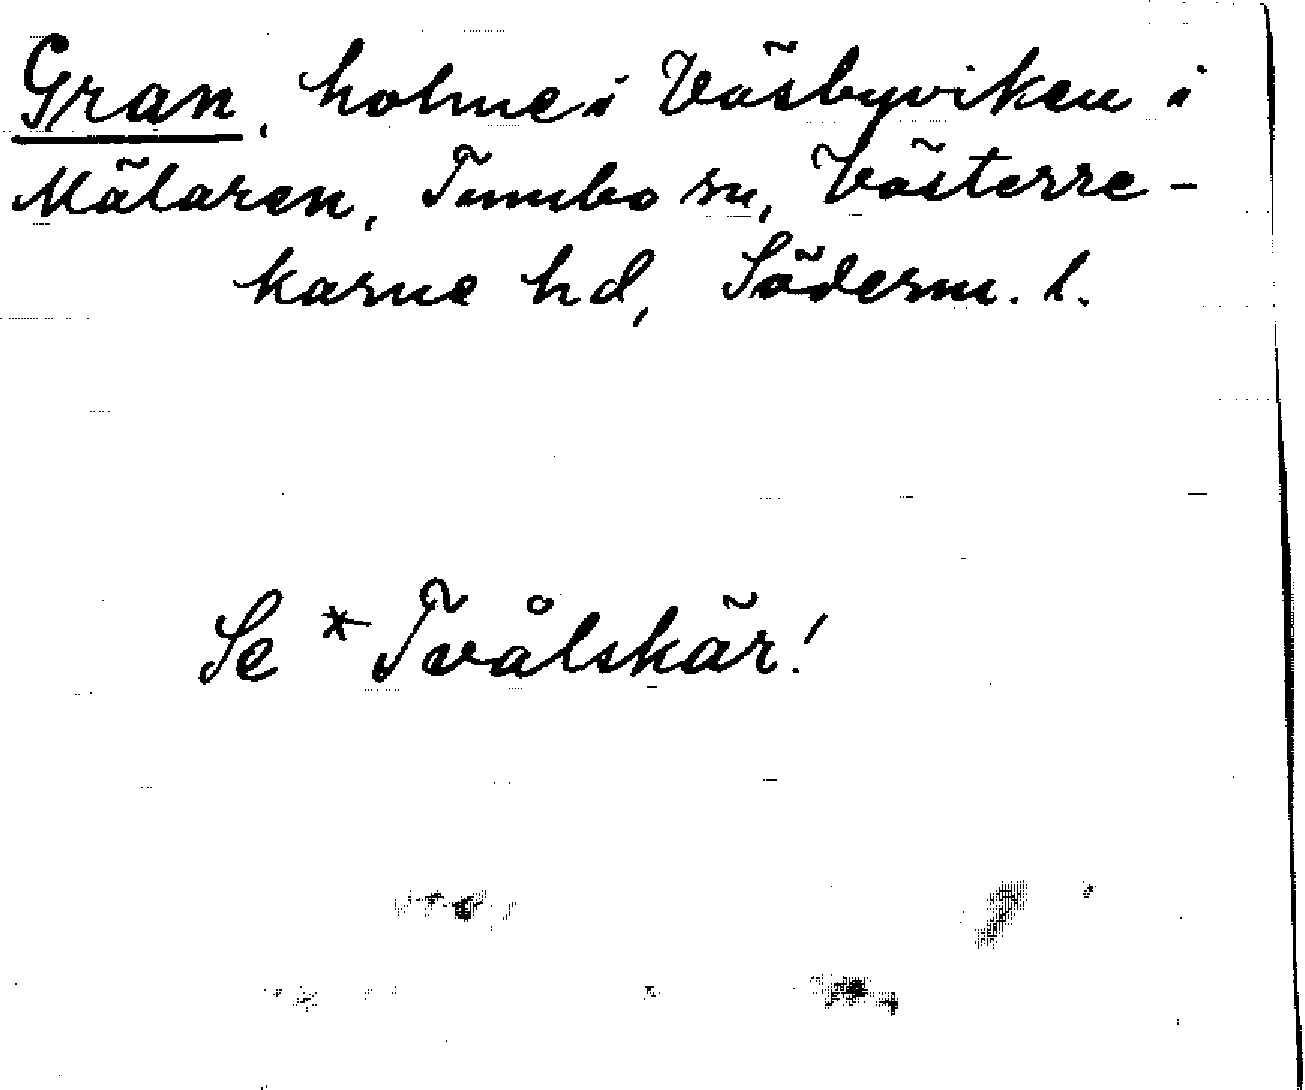 Gran, holme i Väsbyviken i
Mälaren, Tumbo sn, Västerre-
karne hd, Söderm. l.
Se *Tvålskär!